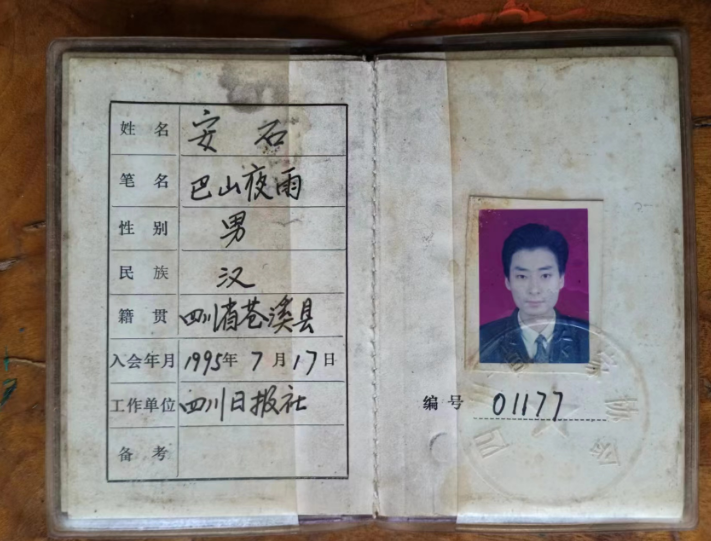 姓名 安石
笔名 巴山夜雨
性别 男
民族 汉
籍贯 四川省苍溪县
入会年月 1995年7月17日
工作单位 四川日报社
备考
编号 01177